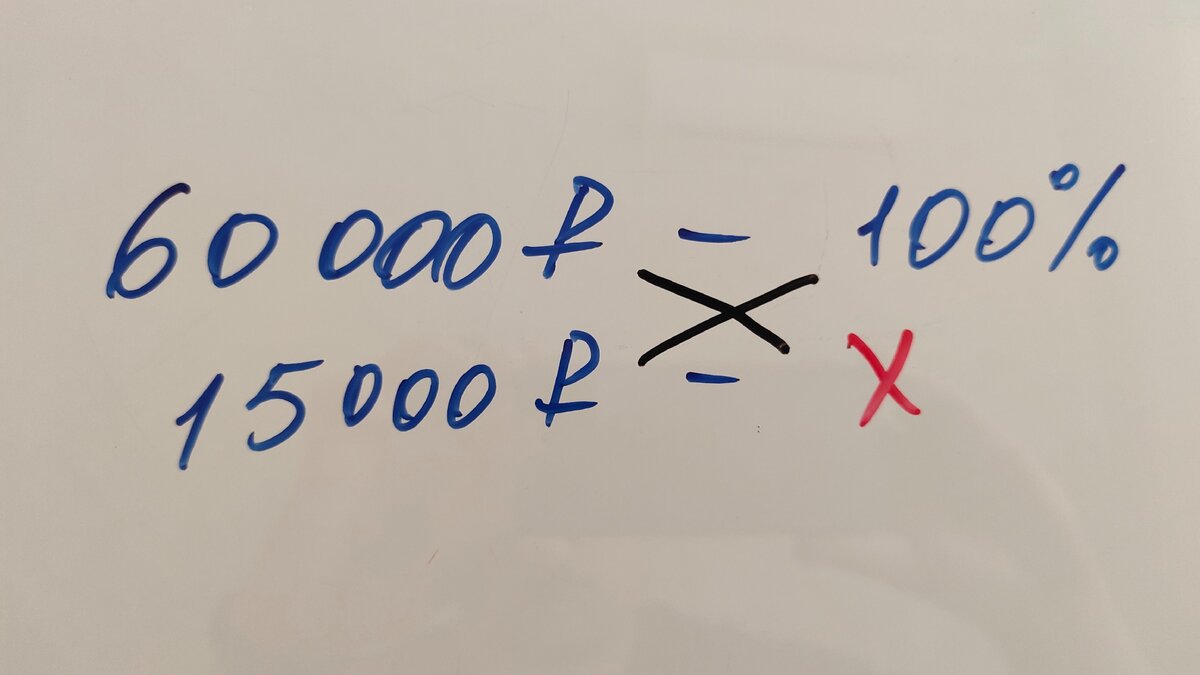 60 000 ₽ - 100%
15 000 ₽ - X